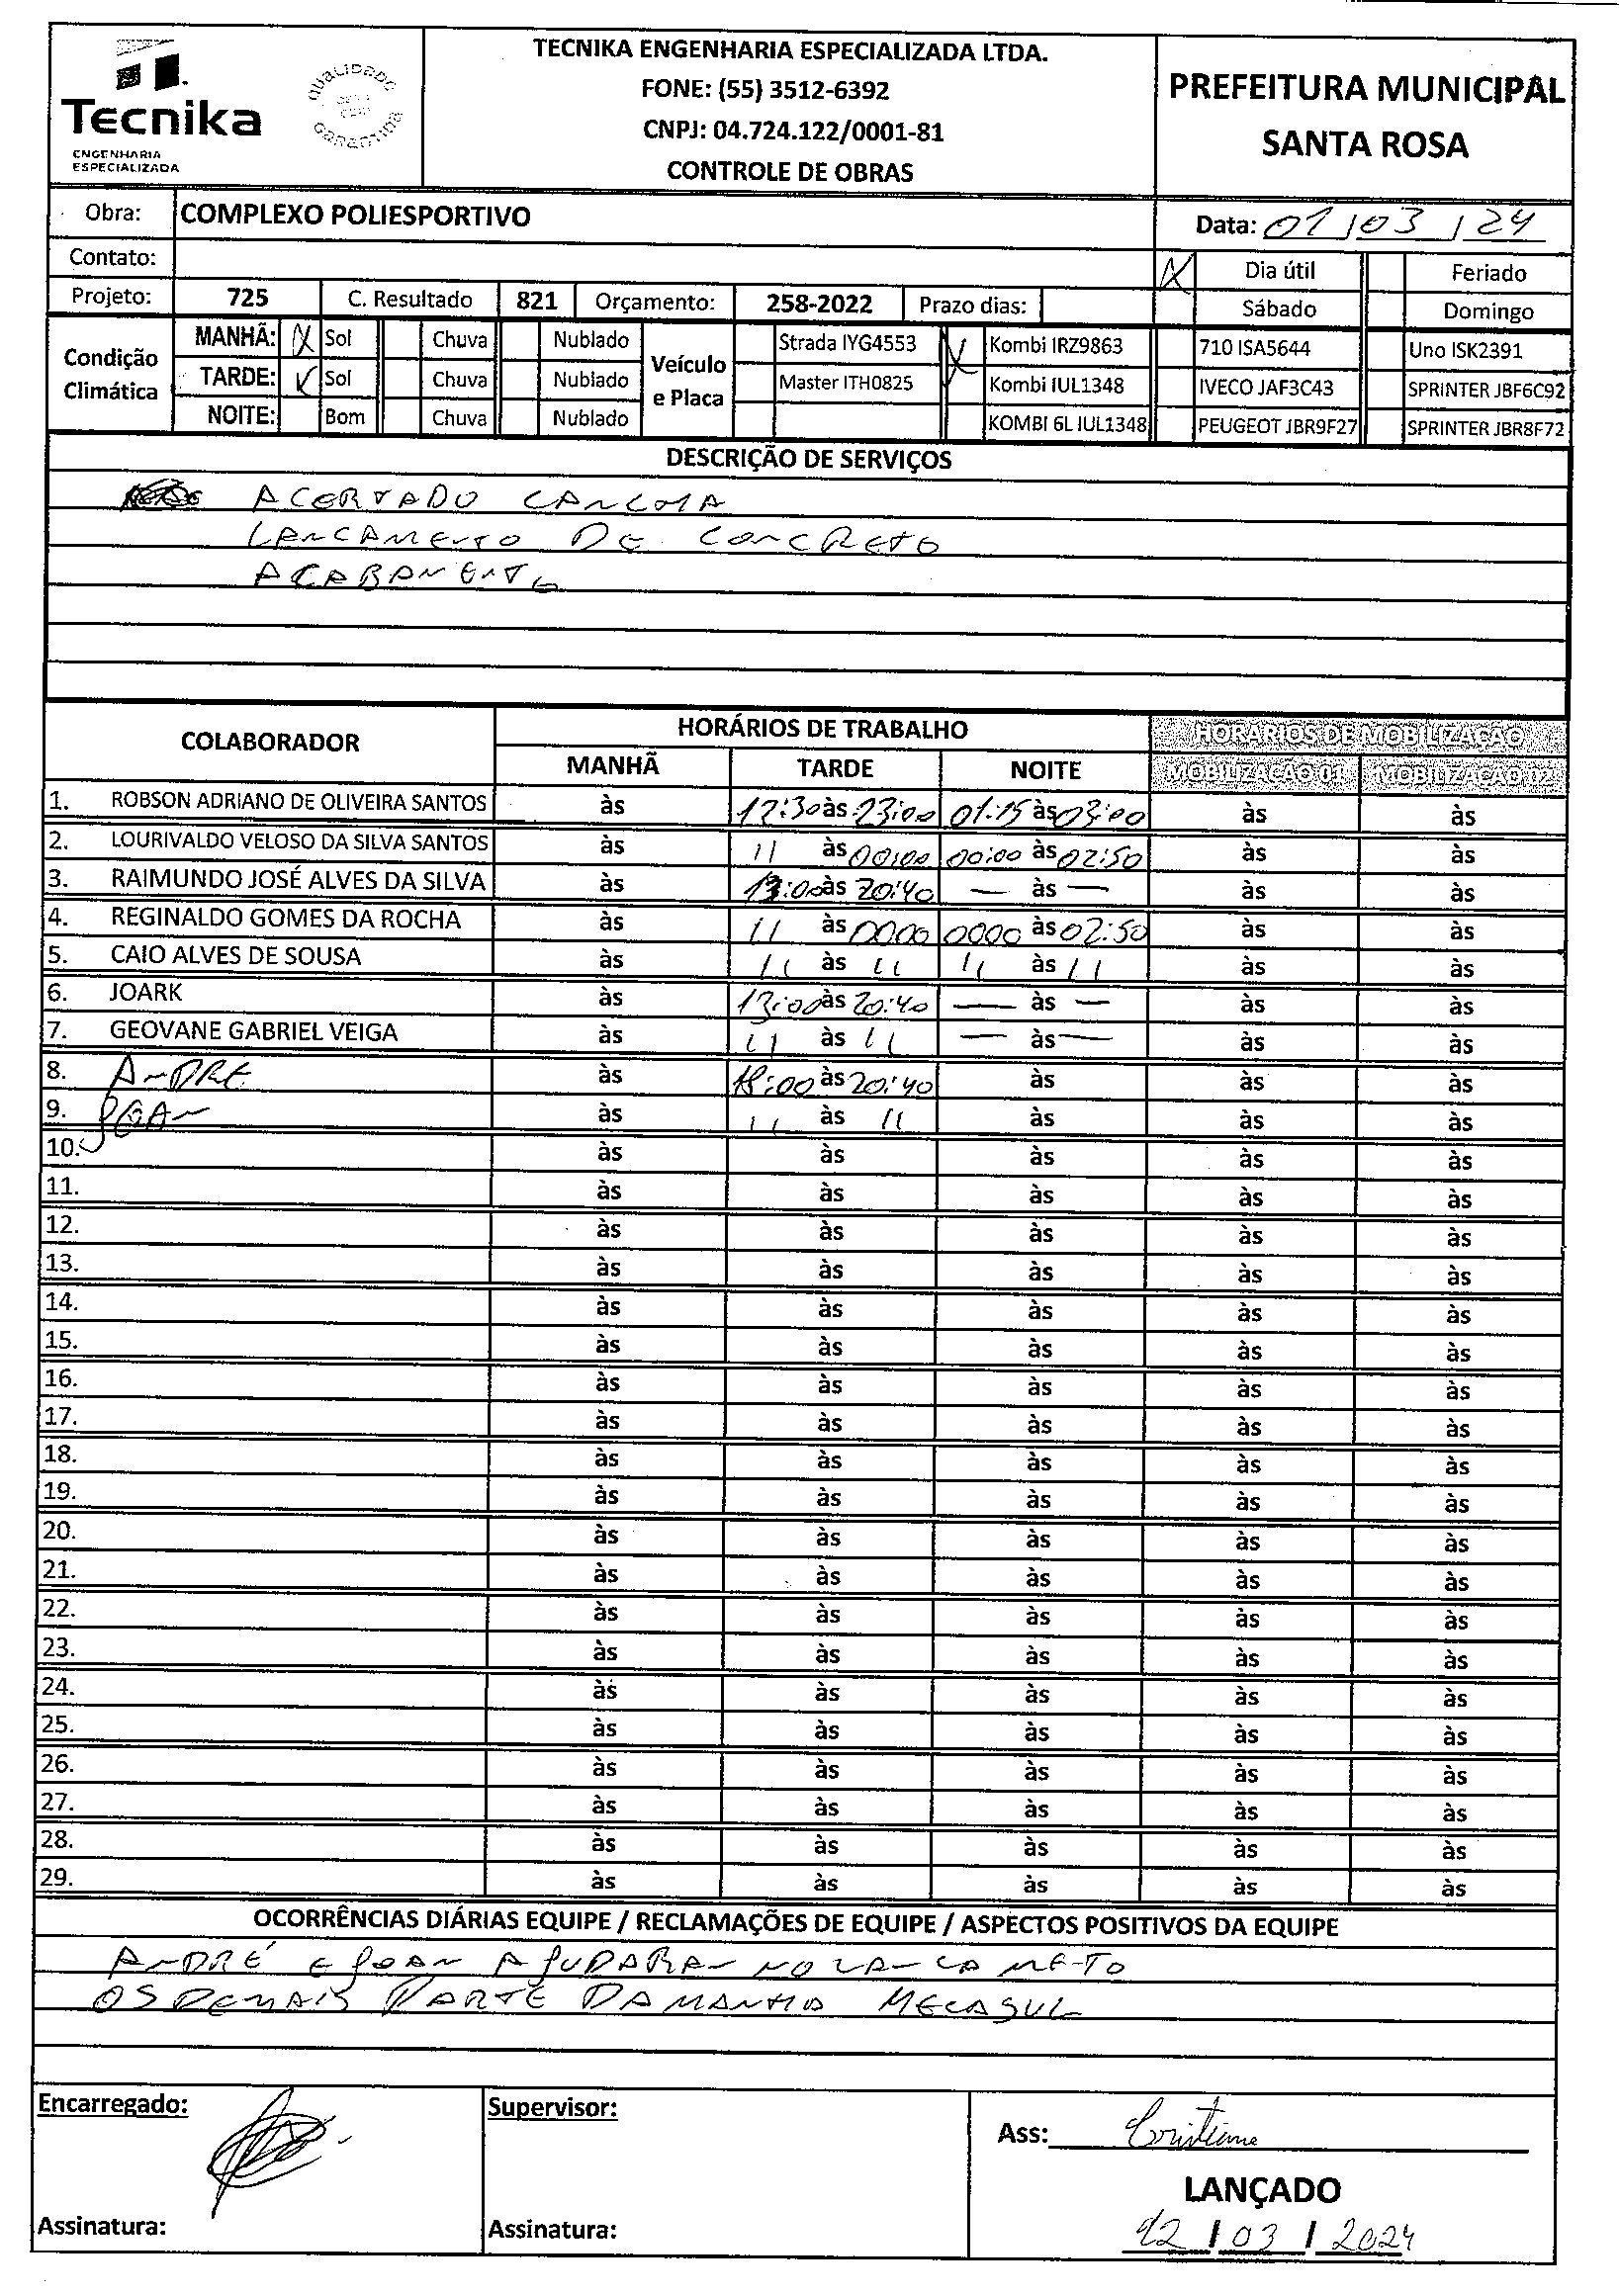 TECNIKA ENGENHARIA ESPECIALIZADA LTDA.
FONE: (55) 3512-6392
CNPJ: 04.724.122/0001-81
CONTROLE DE OBRAS
Tecnika
ENGENHARIA
ESPECIALIZADA
QUALIDADE
GARANTIDA
PREFEITURA MUNICIPAL
SANTA ROSA
Obra: COMPLEXO POLIESPORTIVO
Data: 01/03/24
Contato:
X Dia útil Feriado
Projeto: 725 C. Resultado 821 Orçamento: 258-2022 Prazo dias: Sábado Domingo
Condição Climática
MANHÃ: X Sol Chuva Nublado
TARDE: Sol Chuva Nublado
NOITE: Bom Chuva Nublado
Veículo e Placa
Strada IYG4553 Kombi IRZ9863 710 ISA5644 Uno ISK2391
Master ITH0825 Kombi IUL1348 IVECO JAF3C43 SPRINTER JBF6C92
KOMBI 6L IUL1348 PEUGEOT JBR9F27 SPRINTER JBR8F72
DESCRIÇÃO DE SERVIÇOS
ACERTADO CANCHA
LANCAMENTO DE CONCRETO
ACABAMENTO
COLABORADOR HORÁRIOS DE TRABALHO HORÁRIOS DE MOBILIZAÇÃO
MANHÃ TARDE NOITE MOBILIZAÇÃO 01 MOBILIZAÇÃO 02
1. ROBSON ADRIANO DE OLIVEIRA SANTOS às 12:30 às 23:00 01:15 às 03:00 às às
2. LOURIVALDO VELOSO DA SILVA SANTOS às 11 às 00:00 00:00 às 02:50 às às
3. RAIMUNDO JOSÉ ALVES DA SILVA às 13:00 às 20:40 — às — às às
4. REGINALDO GOMES DA ROCHA às 11 às 0000 0000 às 02:50 às às
5. CAIO ALVES DE SOUSA às 11 às 11 11 às 11 às às
6. JOARK às 13:00 às 20:40 — às — às às
7. GEOVANE GABRIEL VEIGA às 11 às 11 — às — às às
8. ANDRE às 18:00 às 20:40 às às às
9. JEAN às 11 às 11 às às às
10. às às às às às
11. às às às às às
12. às às às às às
13. às às às às às
14. às às às às às
15. às às às às às
16. às às às às às
17. às às às às às
18. às às às às às
19. às às às às às
20. às às às às às
21. às às às às às
22. às às às às às
23. às às às às às
24. às às às às às
25. às às às às às
26. às às às às às
27. às às às às às
28. às às às às às
29. às às às às às
OCORRÊNCIAS DIÁRIAS EQUIPE / RECLAMAÇÕES DE EQUIPE / ASPECTOS POSITIVOS DA EQUIPE
ANDRÉ E JEAN AJUDARAN NO LANCAMENTO
OS DEMAIS PARTE DA MANHA MECASUL
Encarregado: Supervisor:
Ass: Cristiane
LANÇADO
Assinatura: Assinatura:
12/03/2024